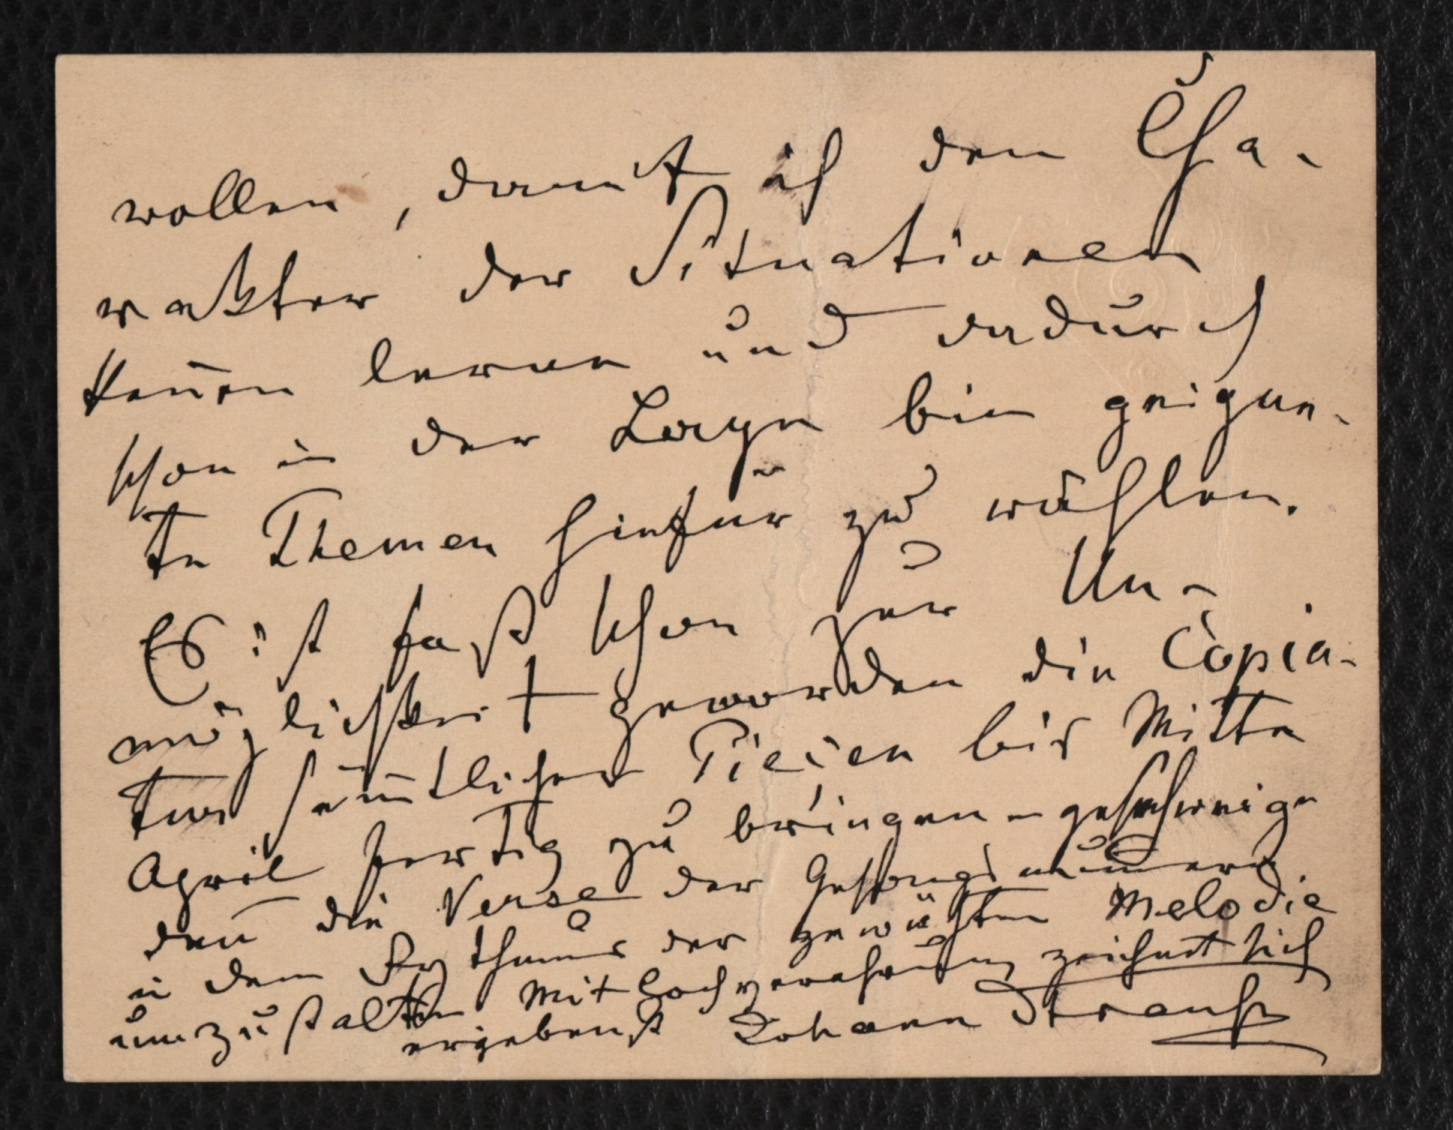 wollen, damit ich den Cha-
rakter der Situationen
kennen lerne und dadurch
schon in der Lage bin geigne-
te Themen hiefür zu wählen.
Es ist fast schon zur Un-
möglichkeit geworden die Copia-
tur sämtlicher Piecen bis Mitte
April fertig zu bringen – geschweige
den̄ die Verse der Gesangsnummern
in dem Rythmus der gewählten Melodie
umzustalten Mit Hochverehrung zeichnet sich
ergebenst Johann Strauss